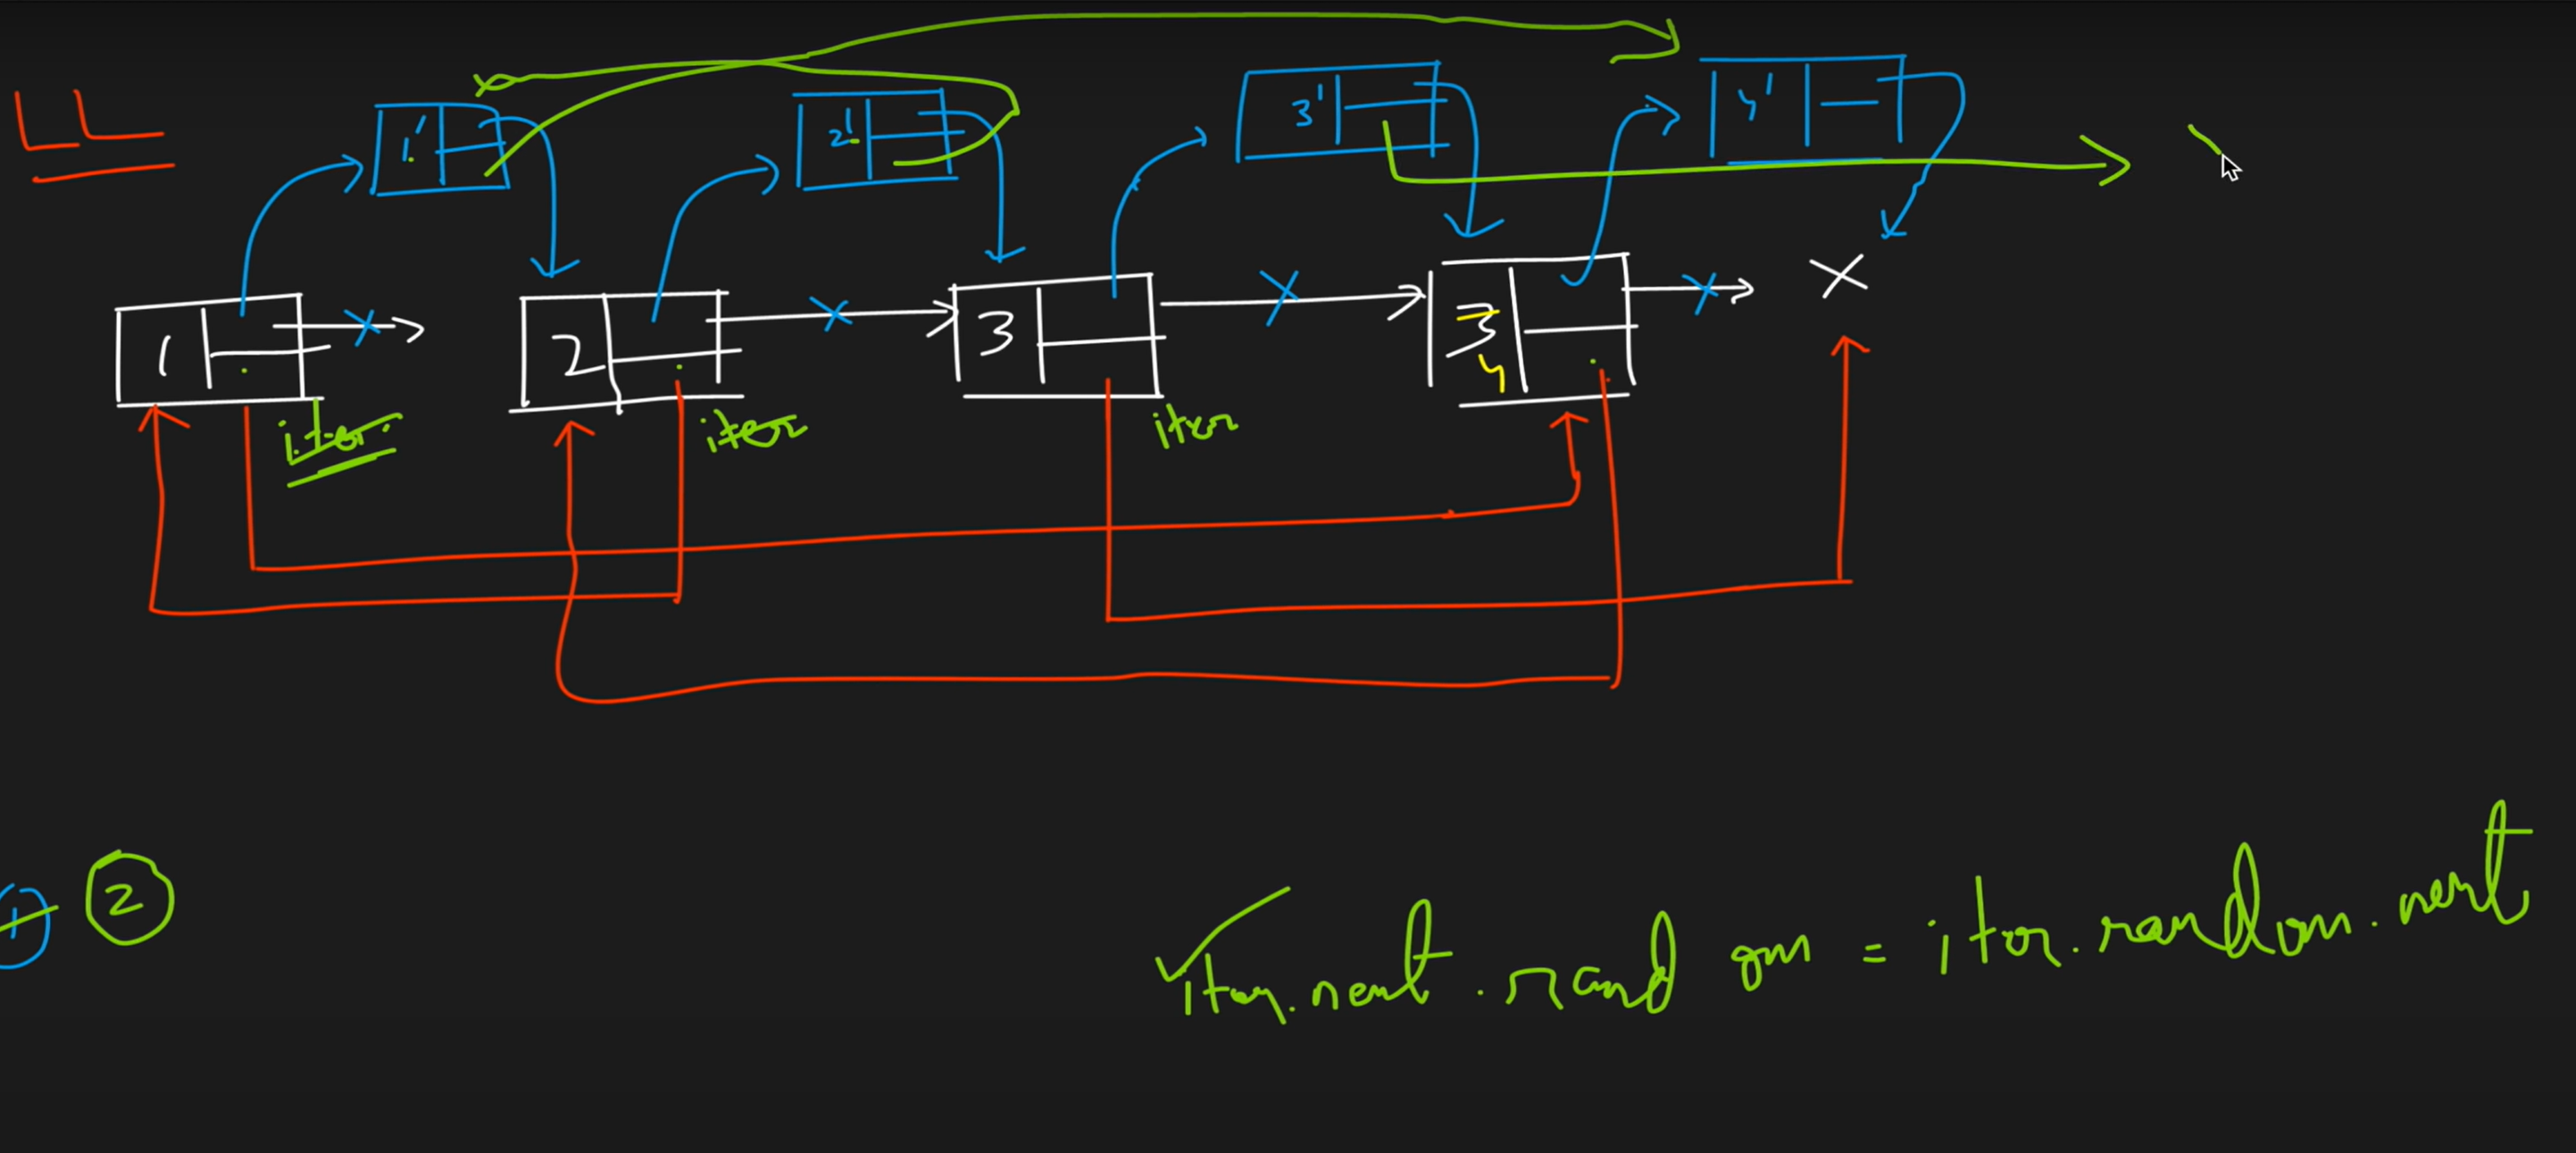 LL
1' 2' 3' 4'
1 2 3 3
4
iter iter iter
1 2
iter.next.random = iter.random.next